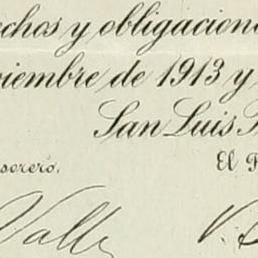 chos y obligacion
viembre de 1913 y
San Luis
sorero. El
Valle V.